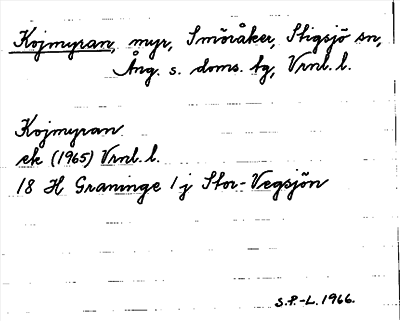 Kojmyran, myr, Smöråker, Stigsjö sn,
Ång. s. doms. tg, Vrnl. l.
Kojmyran
ek (1965) Vrnl. l.
18 H Graninge 1 j Stor-Vegsjön
S.P.-L. 1966.